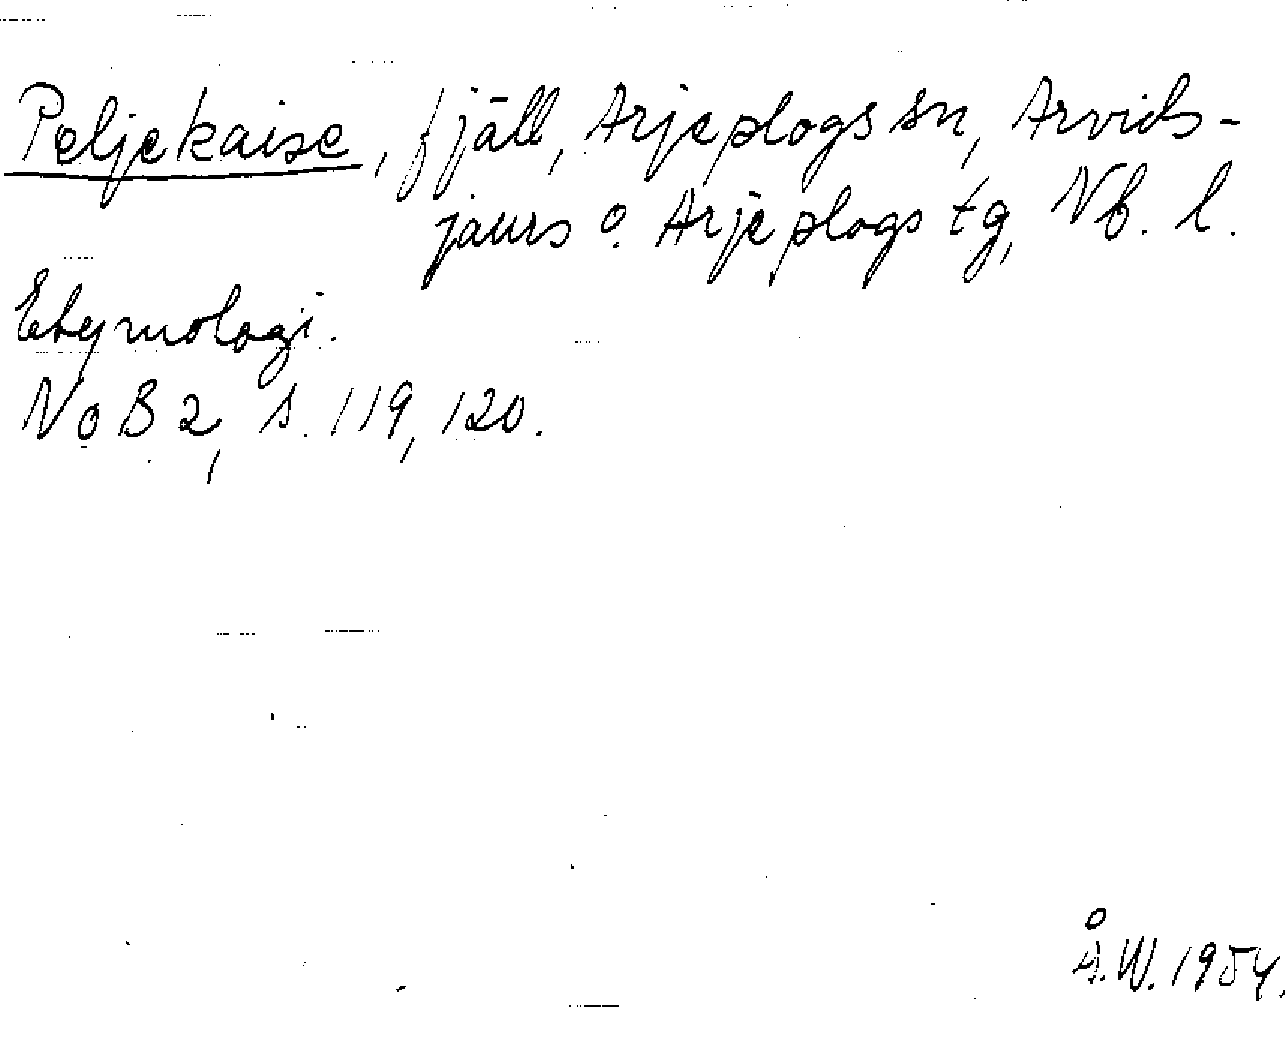 Peljekaise, fjäll, Arjeplogs sn, Arvids-
jaurs o. Arjeplogs tg, Nb. l.
Etymologi.
NoB 2, s. 119, 120.
Å.W. 1954.